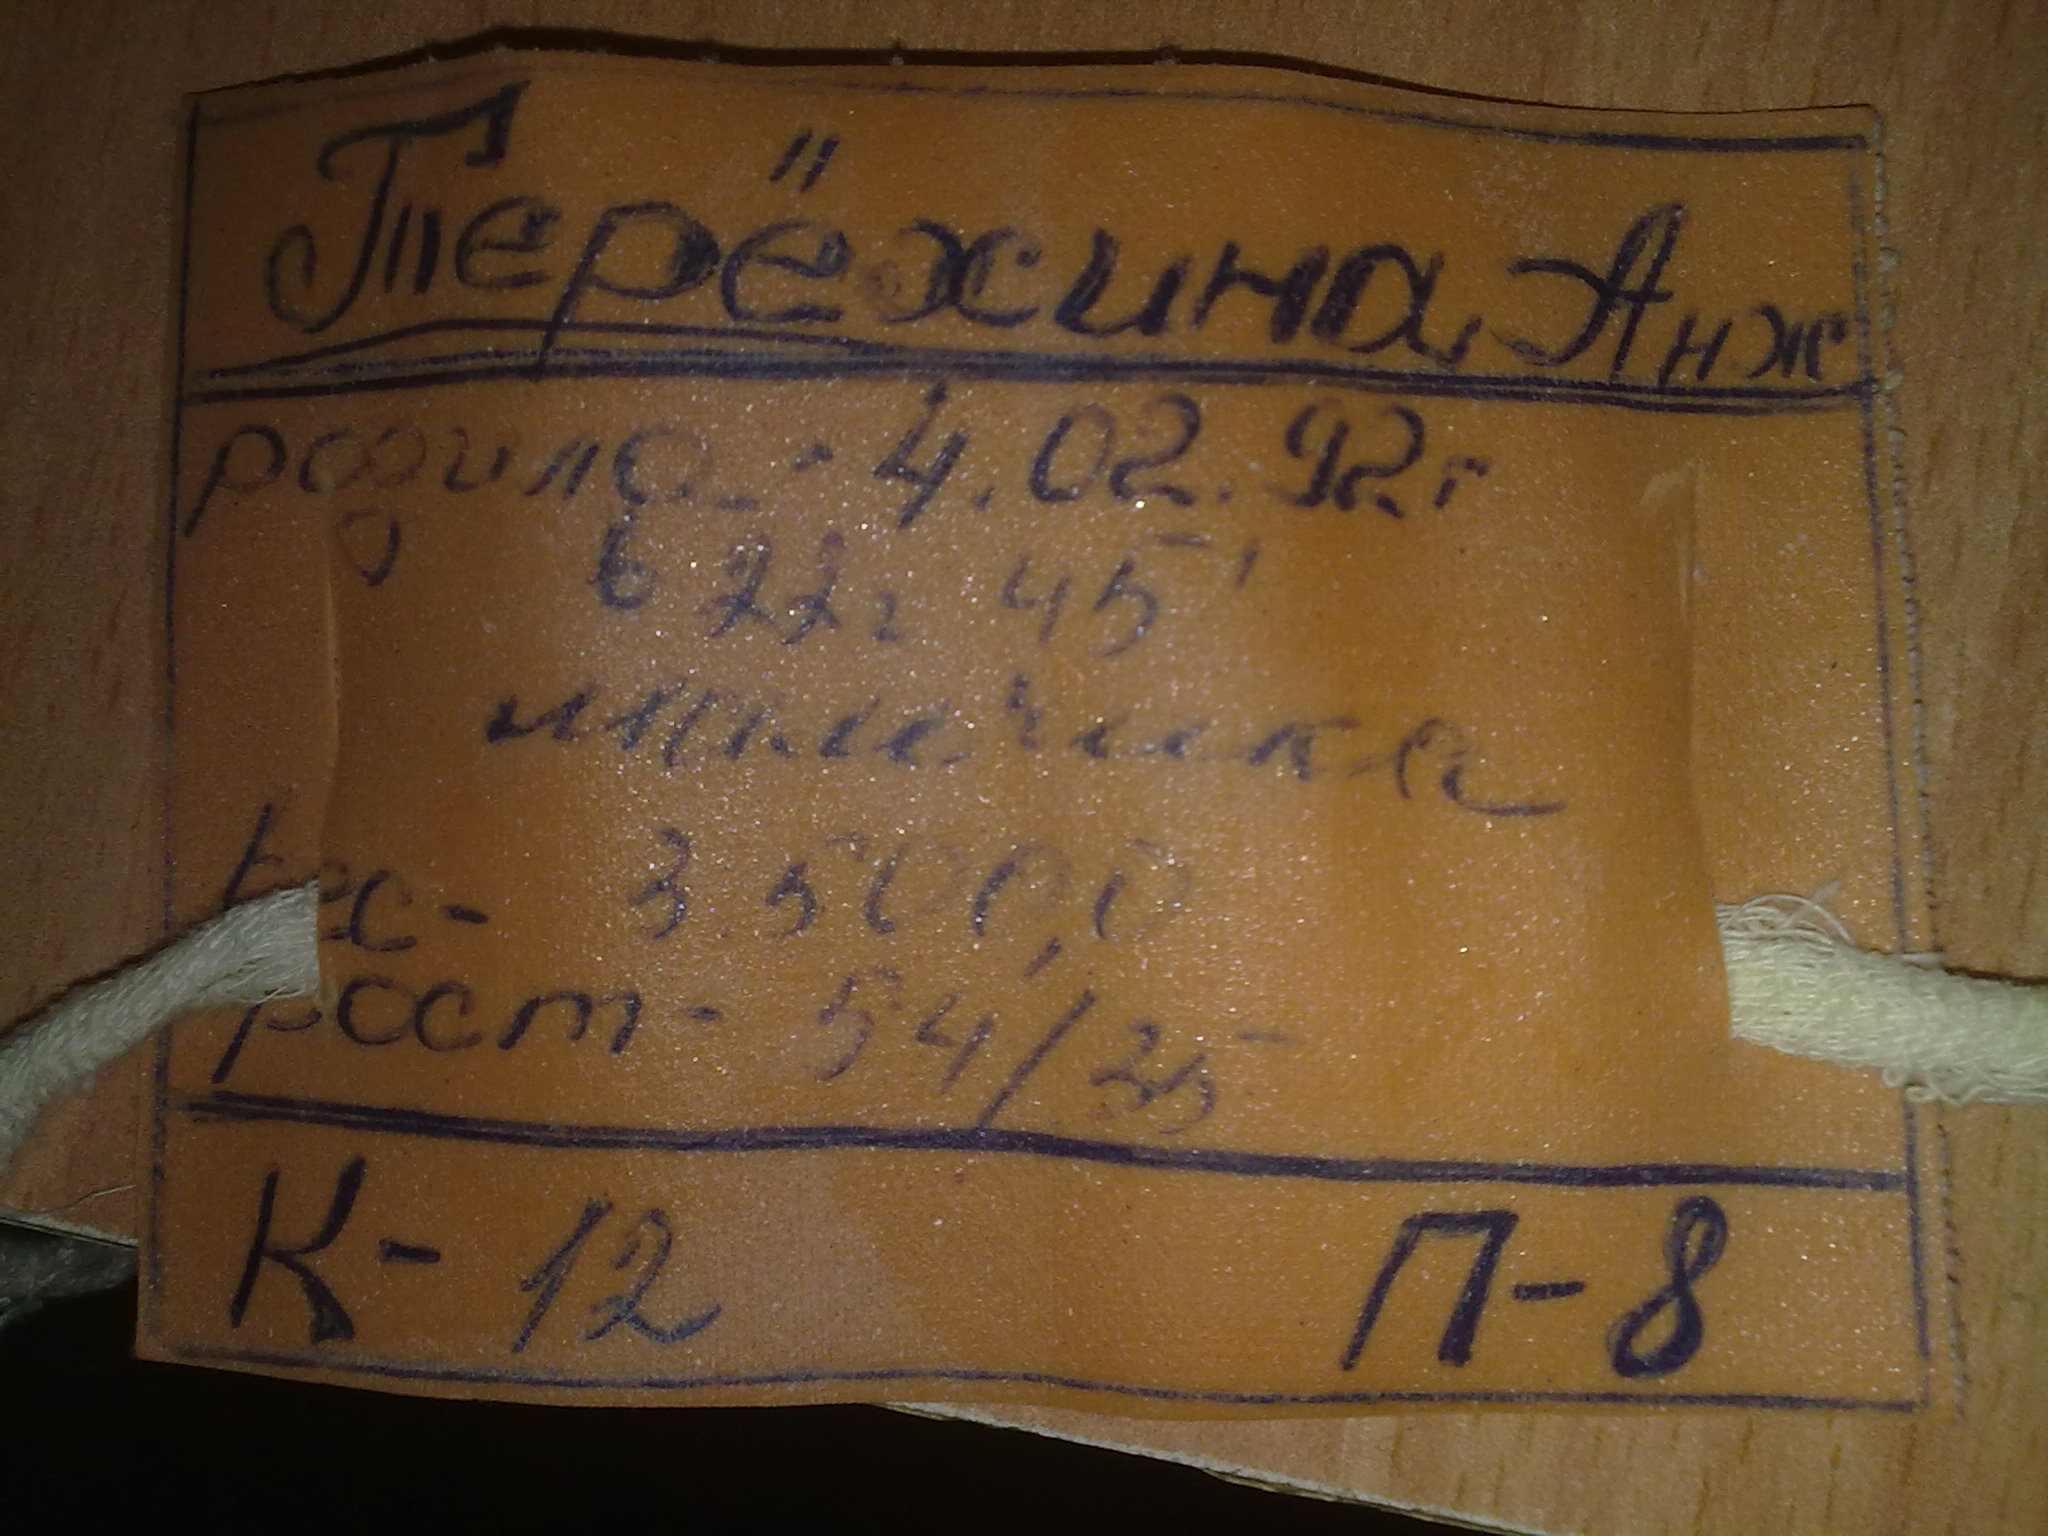 Терёхина Анж
родила - 4.02.92 г
в 22 г 45'
мальчика
Вес - 3.500,0
рост - 54/35
К - 12 П - 8